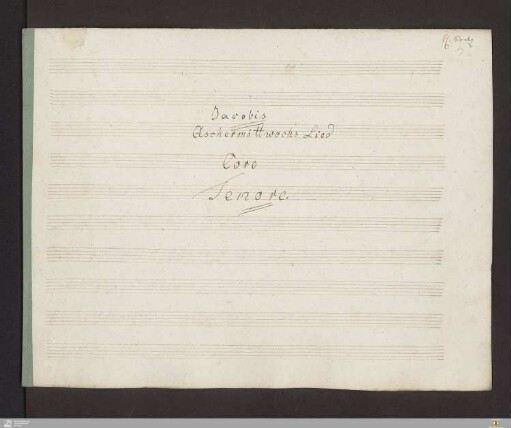 Jacobis
Aschermittwochs Lied
Coro
Tenore.